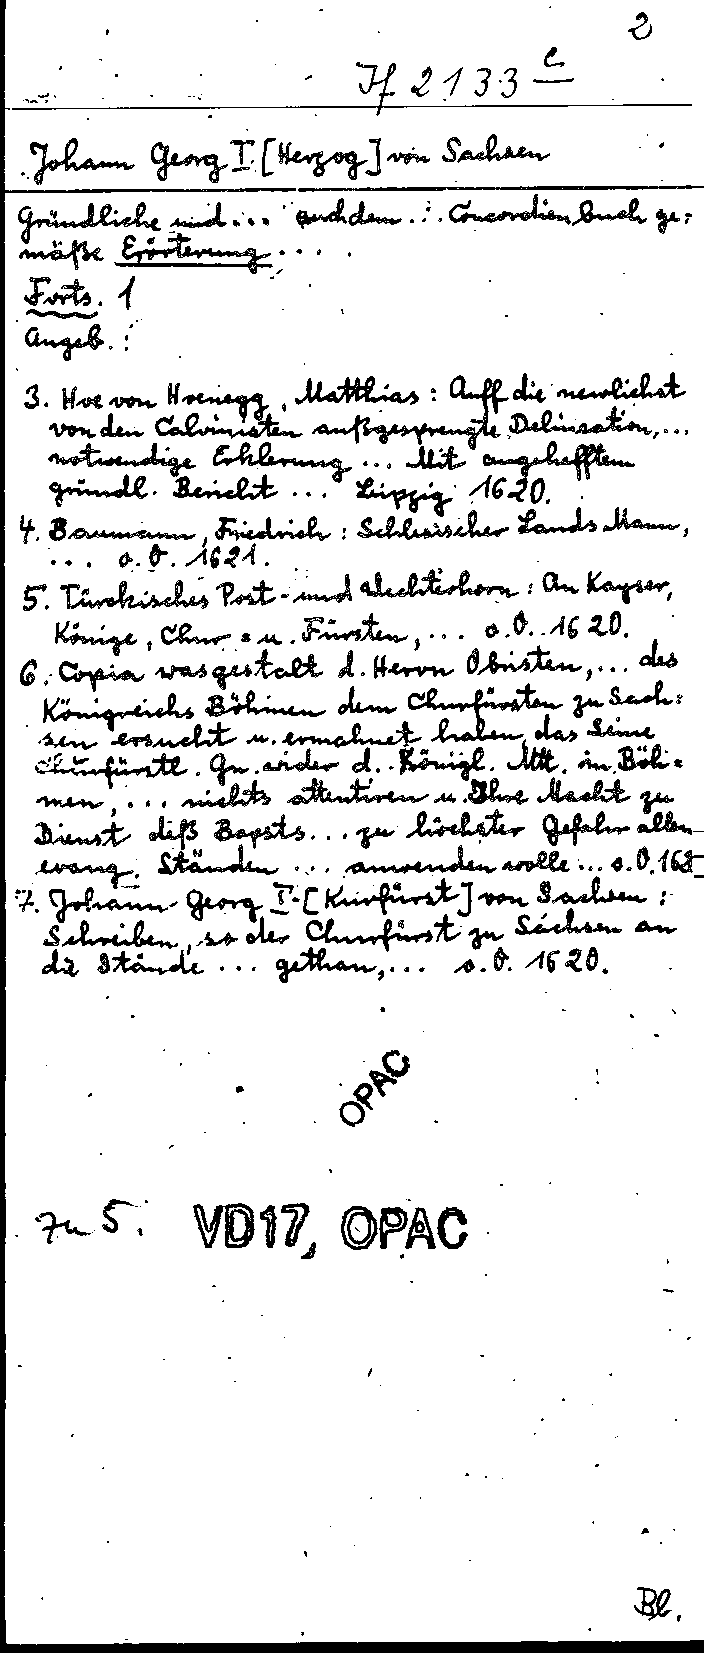 2
If 2133 c
Johann Georg I. [Herzog] von Sachsen
Gründliche und ... auch dem ... Concordienbuch ge=
mäße Erörterung ....
Forts. 1
Angeb.:
3. Hoe von Hoenegg, Matthias: Auff die newlichst
von den Calvinisten außgesprengte Delineation, ...
notwendige Erklerung ... Mit angehefftem
gründl. Bericht ... Leipzig 1620.
4. Baumann, Friedrich: Schlesischer Lands Mann,
... o.O. 1621.
5. Türckisches Post- und Wechterhorn: An Kayser,
Könige, Chur= u. Fürsten, ... o.O. 1620.
6. Copia wasgestalt d. Herrn Obristen, ... des
Königreichs Böhimen dem Churfürsten zu Sach=
sen ersucht u. ermahnet haben, das Seine
Churfürstl. Gn. wider d. Königl. Mtt. in Böhi=
men, ... nichts attentiren u. Ihre Macht zu
Dienst deß Bapsts ... zu höchster Gefahr allen
evang. Ständen ... anwenden wolle ... o.O.
7. Johann Georg I. [Kurfürst] von Sachsen:
Schreiben, so der Churfürst zu Sachsen an
die Stände ... gethan, ... o.O. 1620.
OPAC
Zu 5. VD17, OPAC
Bl.